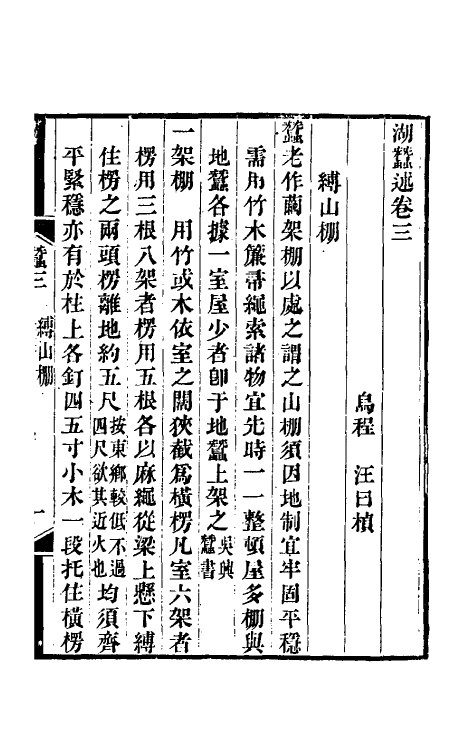 湖蠶述卷三
烏程　汪曰楨
縛山棚
蠶老作繭架棚以處之謂之山棚須因地制宜牢固平穩
需用竹木簾帚繩索諸物宜先時一一整頓屋多棚與
地蠶各據一室屋少者卽于地蠶上架之吳興蠶書
一架棚　用竹或木依室之闊狹截爲橫楞凡室六架者
楞用三根八架者楞用五根各以麻繩從梁上懸下縛
住楞之兩頭楞離地約五尺按東鄉較低不過四尺欲其近火也均須齊
平緊穩亦有於柱上各釘四五寸小木一段托住橫楞
蠶三　縛山棚　一